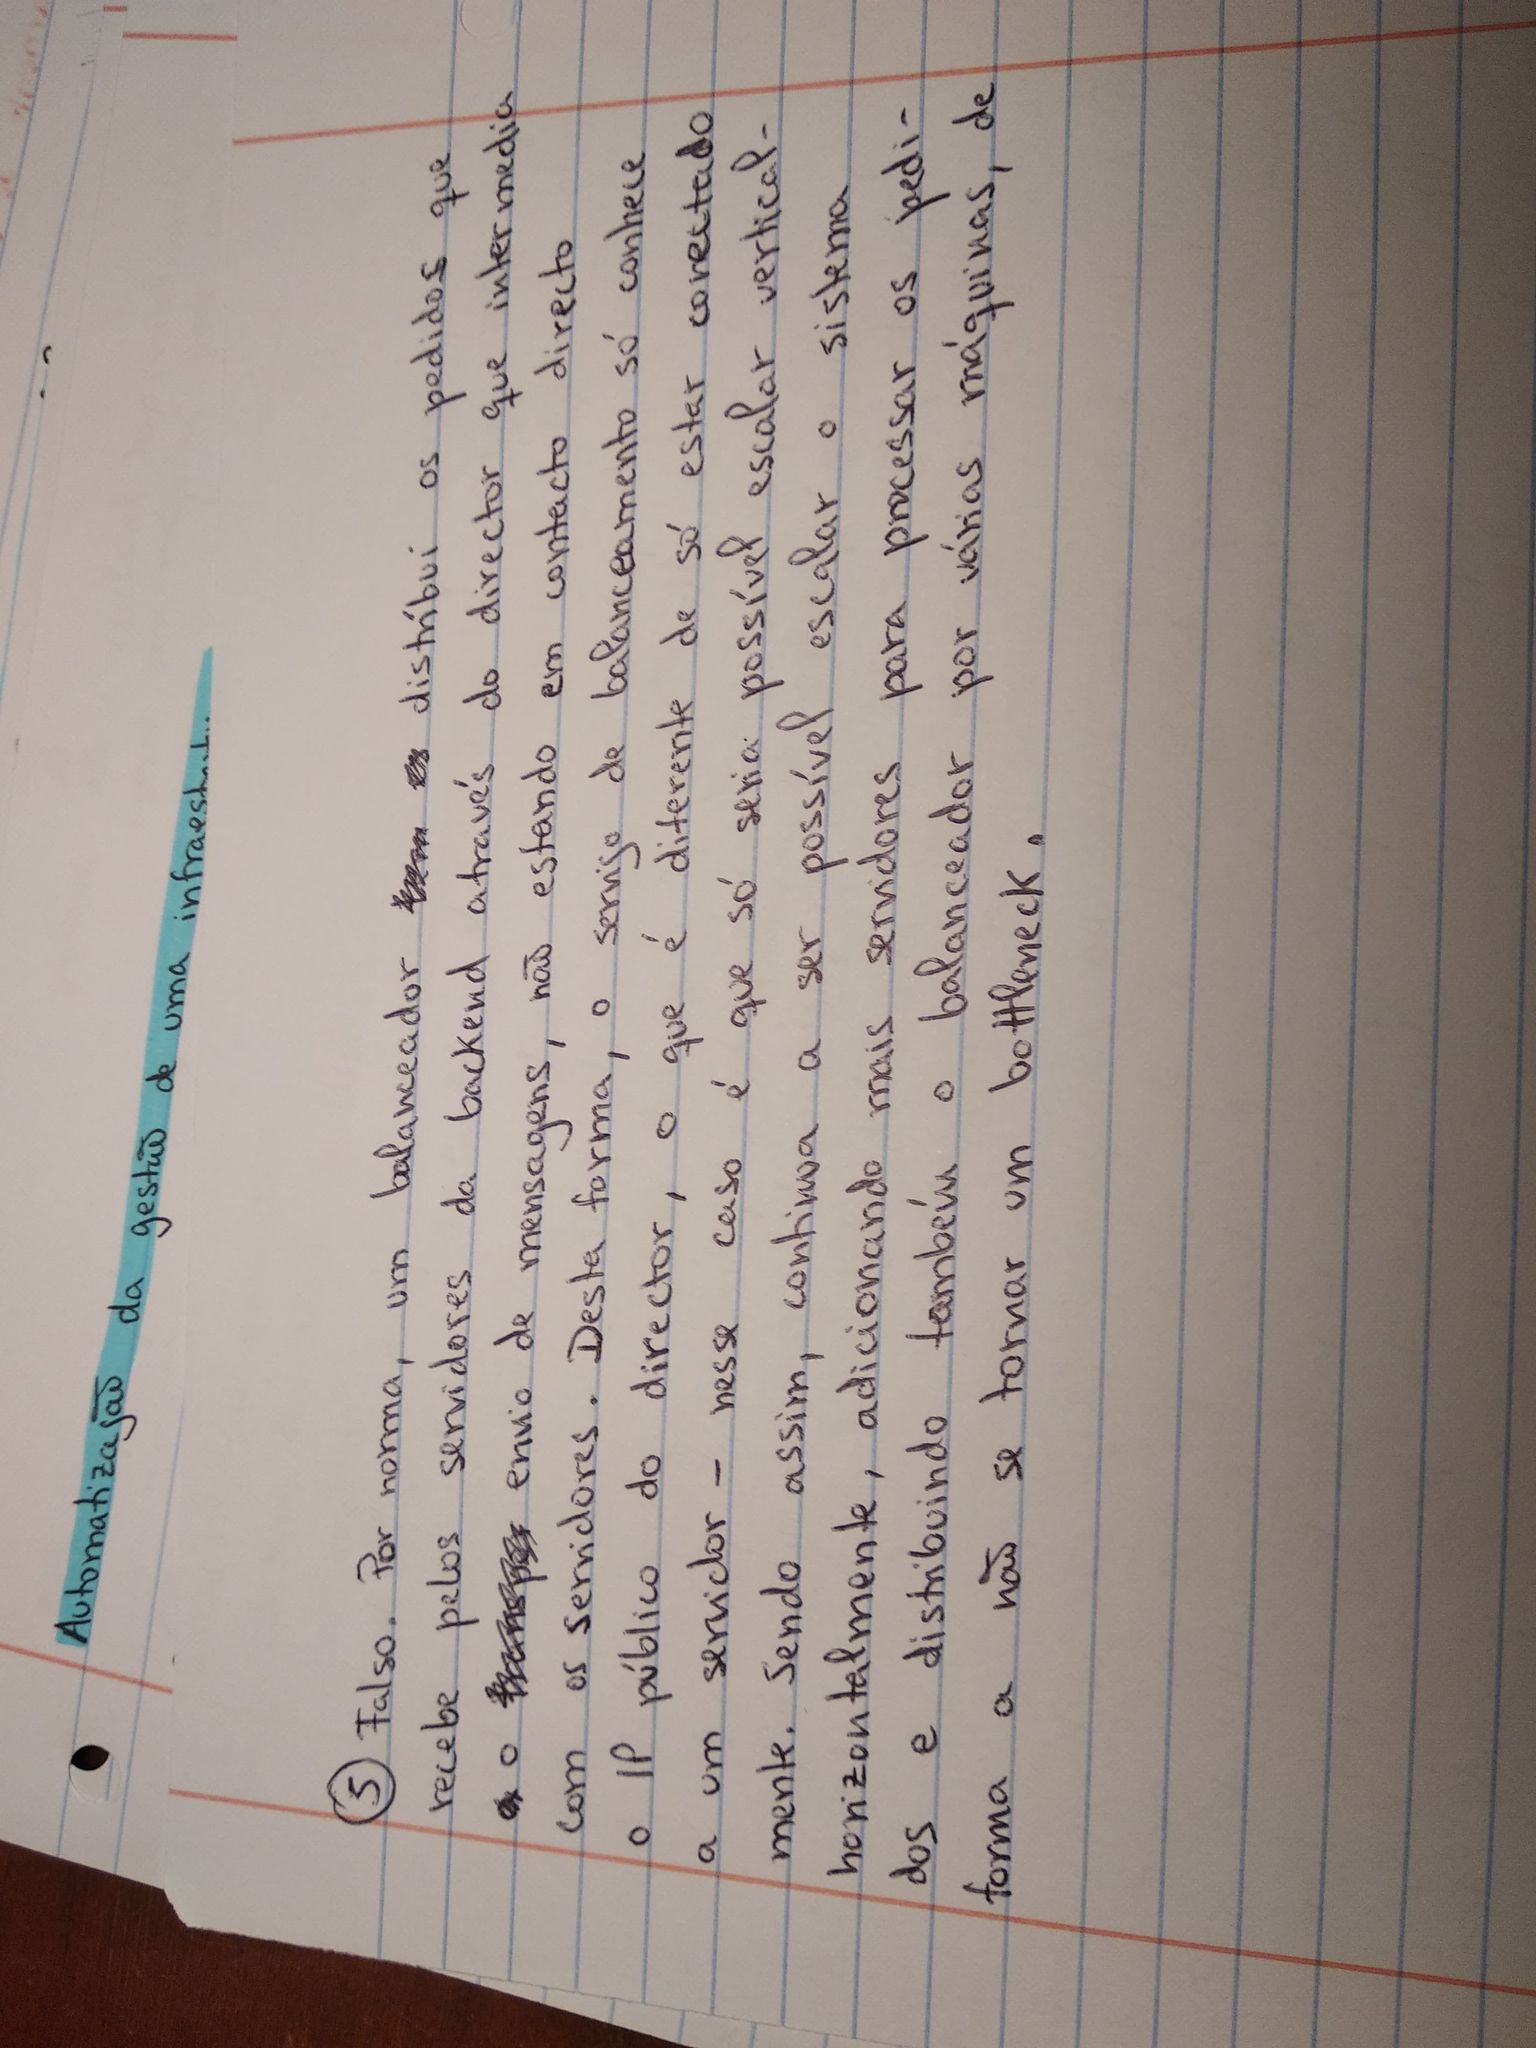 Automatização da gestão de uma
⑤ Falso. Por norma, um balanceador distríbui os pedidos que
recebe pelos servidores da backend através do director que intermedia
o envio de mensagens, não estando em contacto directo
com os servidores. Desta forma, o serviço de balanceamento só conhece
o IP público do director, o que é diferente de só estar conectado
a um servidor – nesse caso é que só seria possível escalar vertical-
mente. Sendo assim, continua a ser possível escalar o sistema
horizontalmente, adicionando mais servidores para processar os pedi-
dos e distribuindo também o balanceador por várias máquinas, de
forma a não se tornar um bottleneck.